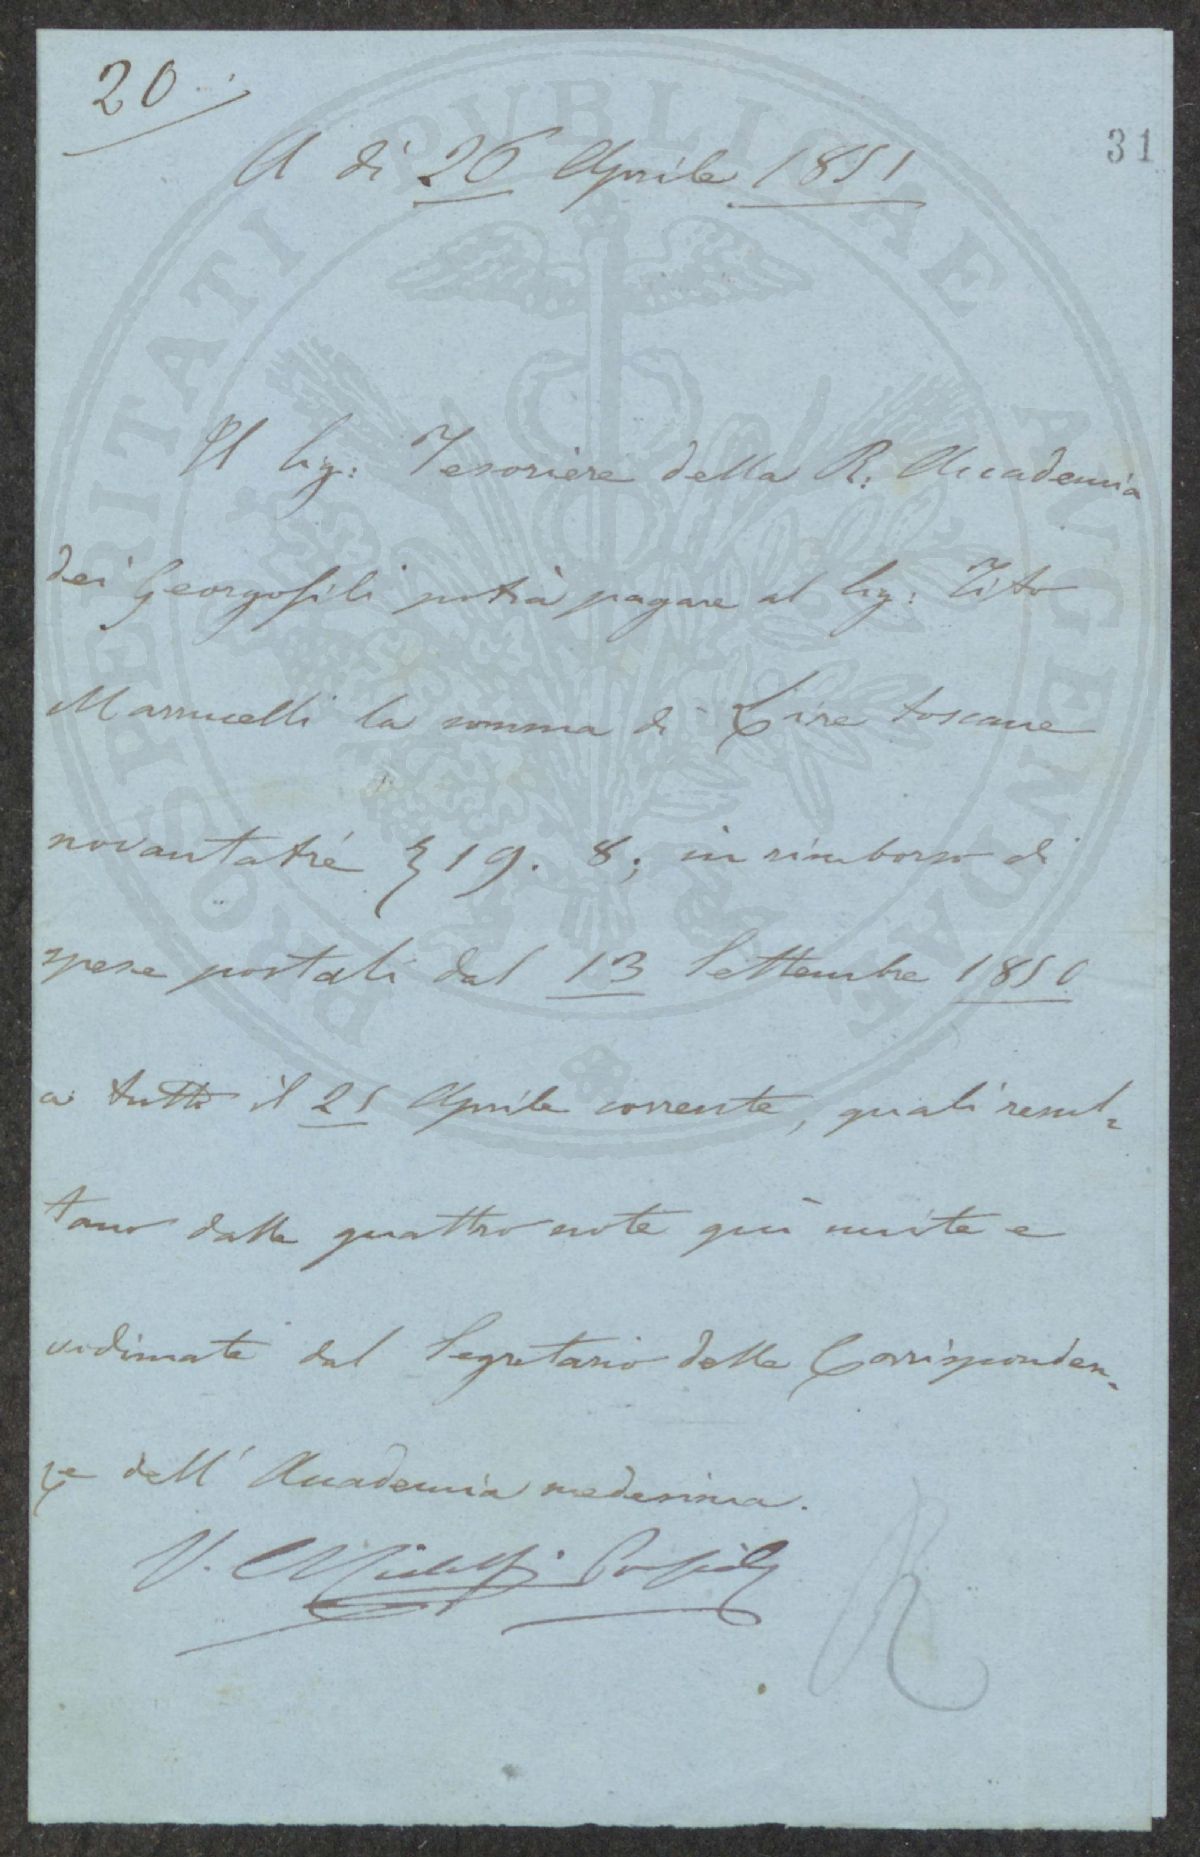 20.
31
A dì 26 Aprile 1851
Il Sig: Tesoriere della R. Accademia
dei Georgofili potrà pagare al Sig: Tito
Marrucelli la somma di Lire toscane
novantatré 19. 8; in rimborso di
spese postali dal 13 Settembre 1850
a tutto il 25 Aprile corrente, quali resul=
tano dalle quattro note quì unite e
vidimate dal Segretario delle Corrisponden-
ze dell' Accademia medesima.
V.
R
PROSPERITATI PUBLICAE AUGENDAE